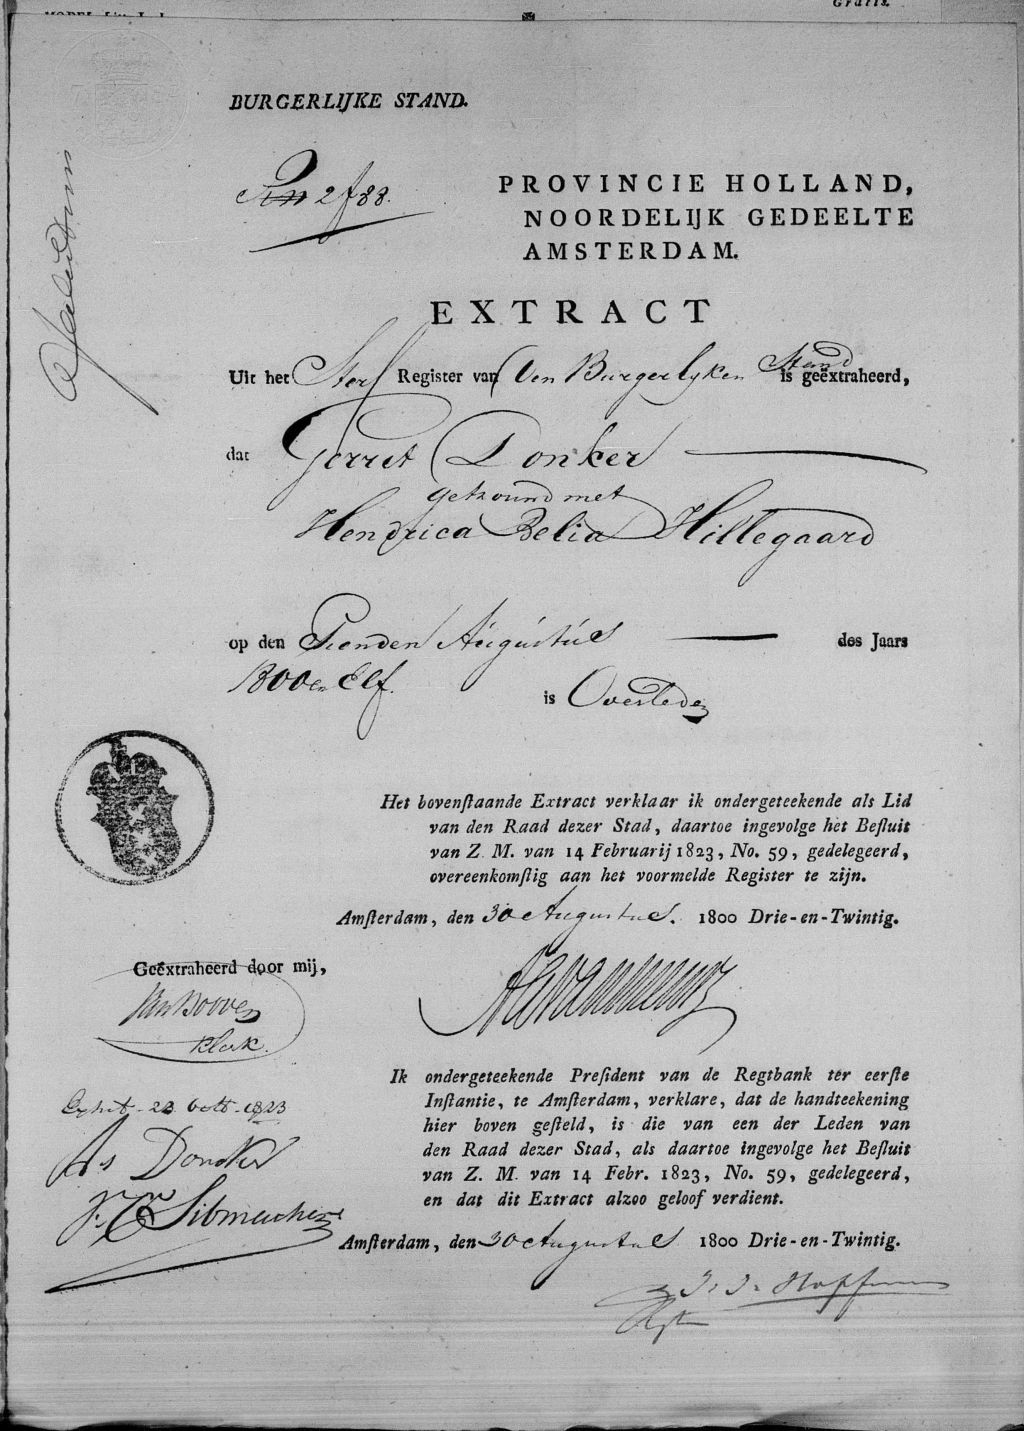 Gratis.
BURGERLIJKE STAND.
PROVINCIE HOLLAND,
NOORDELIJK GEDEELTE
AMSTERDAM.
EXTRACT
Uit het Sterf Register van Den Burgerlyken Stand is geëxtraheerd,
dat Gerret Donker
getrouwd met
Hendrica Belia Hillegaard
op den Tienden Augustus des Jaars
1800 en Elf. is Overleden
Het bovenstaande Extract verklaar ik ondergeteekende als Lid
van den Raad dezer Stad, daartoe ingevolge het Besluit
van Z. M. van 14 Februarij 1823, No. 59, gedelegeerd,
overeenkomstig aan het voormelde Register te zijn.
Amsterdam, den 30 Augustus. 1800 Drie-en-Twintig.
Geëxtraheerd door mij,
Klerk.
Ik ondergeteekende President van de Regtbank ter eerste
Instantie, te Amsterdam, verklare, dat de handteekening
hier boven gesteld, is die van een der Leden van
den Raad dezer Stad, als daartoe ingevolge het Besluit
van Z. M. van 14 Febr. 1823, No. 59, gedelegeerd,
en dat dit Extract alzoo geloof verdient.
Amsterdam, den 30 Augustus 1800 Drie-en-Twintig.
Exhit. 22 Octr. 1823
Js Doncker